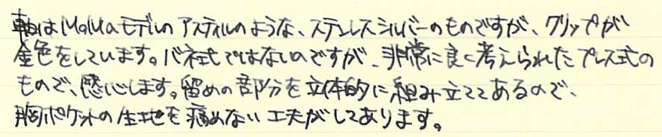 軸はMoMAモデルのアスティルのような、ステンレスシルバーのものですが、クリップが
金色をしています。バネ式ではないのですが、非常に良く考えられたプレス式の
もので、感心します。留めの部分を立体的に組み立ててあるので、
胸ポケットの生地を痛めない工夫がしてあります。